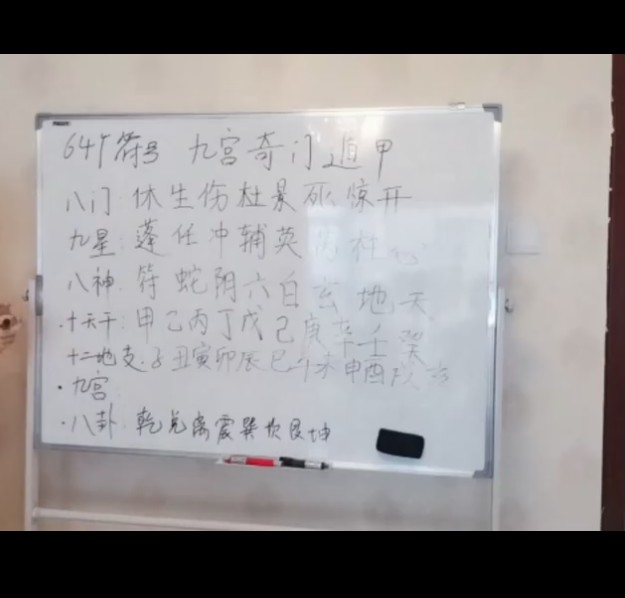 64个符号 九宫奇门遁甲
八门:休生伤杜景死惊开
九星:蓬任冲辅英芮柱心
八神:符蛇阴六白玄地天
·十天干:甲己丙丁戊己庚辛壬癸
十二地支:子丑寅卯辰巳午未申酉戌亥
·九宫
·八卦:乾兑离震巽坎艮坤